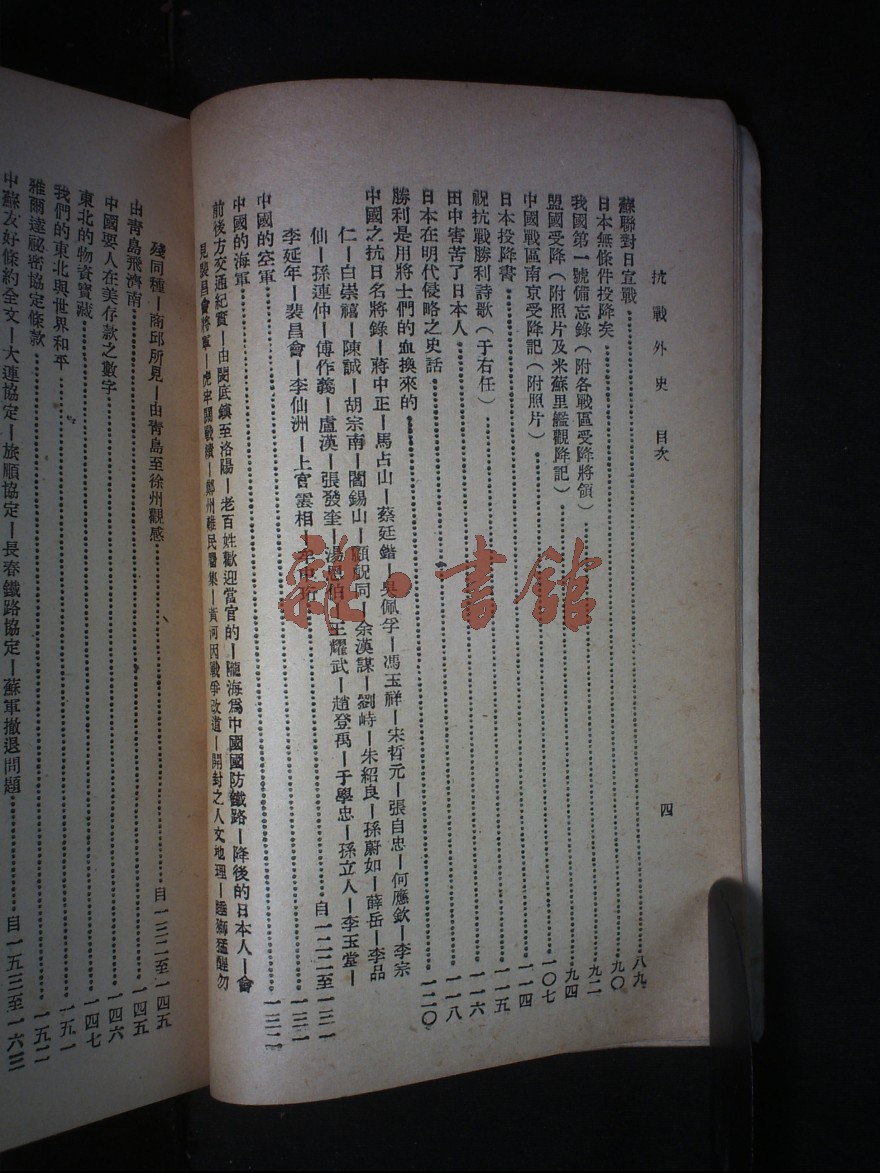 抗戰外史 目次 四
蘇聯對日宣戰……八九
日本無條件投降矣……九〇
我國第一號備忘錄(附各戰區受降將領)……九二
盟國受降(附照片及米蘇里艦觀降記)……九四
中國戰區南京受降記(附照片)……一〇七
日本投降書……一一四
祝抗戰勝利詩歌(于右任)……一一五
田中害苦了日本人……一一六
日本在明代侵略之史話……一一八
勝利是用將士們的血換來的……一二〇
中國之抗日名將錄—蔣中正—馬占山—蔡廷鍇—吳佩孚—馮玉祥—宋哲元—張自忠—何應欽—李宗
仁—白崇禧—陳誠—胡宗南—閻錫山—顧祝同—余漢謀—劉峙—朱紹良—孫蔚如—薛岳—李品
仙—孫連仲—傅作義—盧漢—張發奎—湯恩伯—王耀武—趙登禹—于學忠—孫立人—李玉堂—
李延年—裴昌會—李仙洲—上官雲相—牟中珩……自一二二至一三一
中國的空軍……一三一
中國的海軍……一三二
前後方交通紀實—由閿底鎮至洛陽—老百姓歡迎當官的—隴海爲中國國防鐵路—降後的日本人—會
見裴昌會將軍—虎牢關戰績—鄭州難民麕集—黃河因戰爭改道—開封之人文地理—睡獅猛醒勿
殘同種—商邱所見—由靑島至徐州觀感……自一三二至一四五
由靑島飛濟南……一四五
中國要人在美存款之數字……一四六
東北的物資寶藏……一四七
我們的東北與世界和平……一五一
雅爾達祕密協定條款……一五二
中蘇友好條約全文—大連協定—旅順協定—長春鐵路協定—蘇軍撤退問題……自一五三至一六三
雜·書館